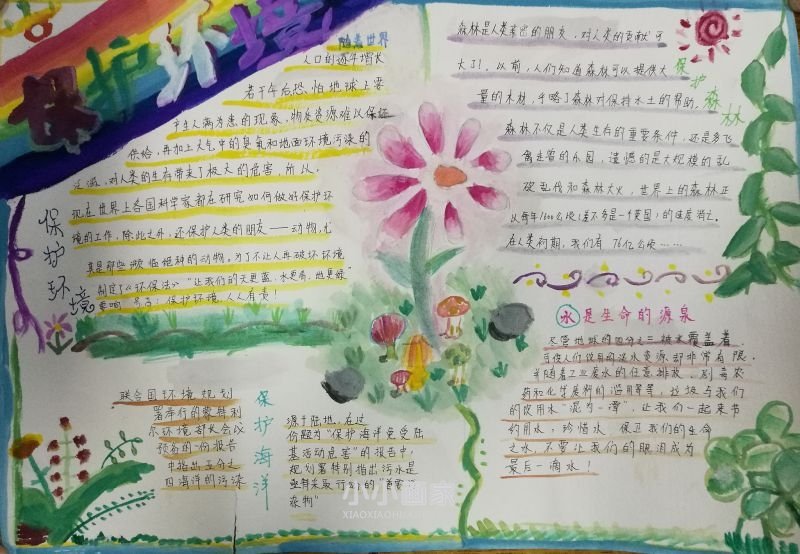 保护环境
随着世界
人口的逐年增长
若干年后恐怕地球上要
产生人满为患的现象、物质资源难以保证
供给，再加上大气中的臭氧和地面环境污染的
泛滥，对人类的生存带来了极大的危害，所以，
现在世界上各国科学家都在研究如何做好保护环
境的工作，除此之外，还保护人类的朋友——动物，尤
其是那些濒临绝种的动物。为了不让人再破坏环境
制定了《环保法》“让我们的天更蓝，水更清，地更绿”
要响 号召：保护环境，人人有责！
保护环境
森林是人类 的朋友，对人类的贡献可
大了！以前，人们知道森林可以提供大
量的木材，于略了森林对保持水土的帮助。
森林不仅是人类生存的重要条件，还是多飞
禽走兽的乐园，遗憾的是大规模的乱
砍乱伐和森林大火，世界上的森林正
以每年1600公顷(差不多是一个英国)的速度消亡。
在人类初期，我们有 76亿公顷……
保护森林
水是生命的源泉
尽管地球的四分之三被水覆盖着，
可供人们饮用的淡水资源却非常有限。
并随着工业废水的任意排放，剧毒农
药和化学肥料的滥用等等，垃圾与我们
的饮用水“混为一潭”，让我们一起来节
约用水，珍惜水 保卫我们的生命
之水，不要让我们的眼泪成为
最后一滴水！
联合国环境规划
署举行的蒙特利
尔环境部长会议
预备的一份报告
中指出五分之
四海洋的污染
保护海洋
源于陆地。在这
份题为“保护海洋免受陆
基活动危害”的报告中，
规划署特别指出污水是
亟待采取行动的“重
杂物”
小小画家
XIAOXIAOHUAJIA